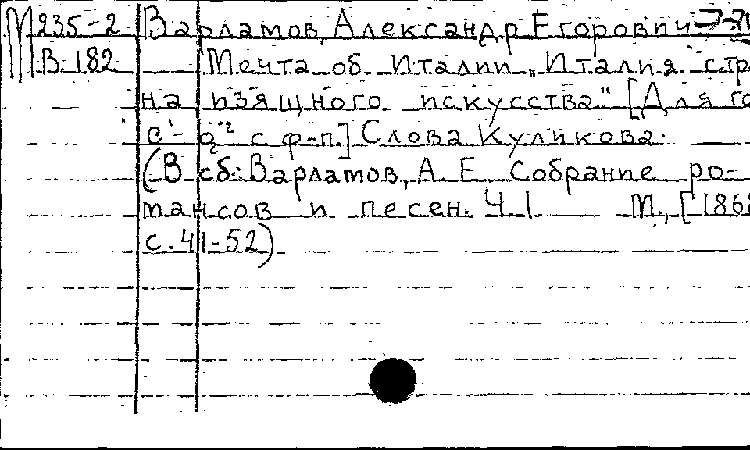 М235-2 Варламов, Александр Егорович
В 182 Мечта об Италии „Италия стра
на изящного искусства" [Для го
с¹-g² с ф-п.] Слова Куликова.
(В сб: Варламов, А. Е. Собрание ро-
мансов и песен. Ч. I М., [186
с. 41-52)